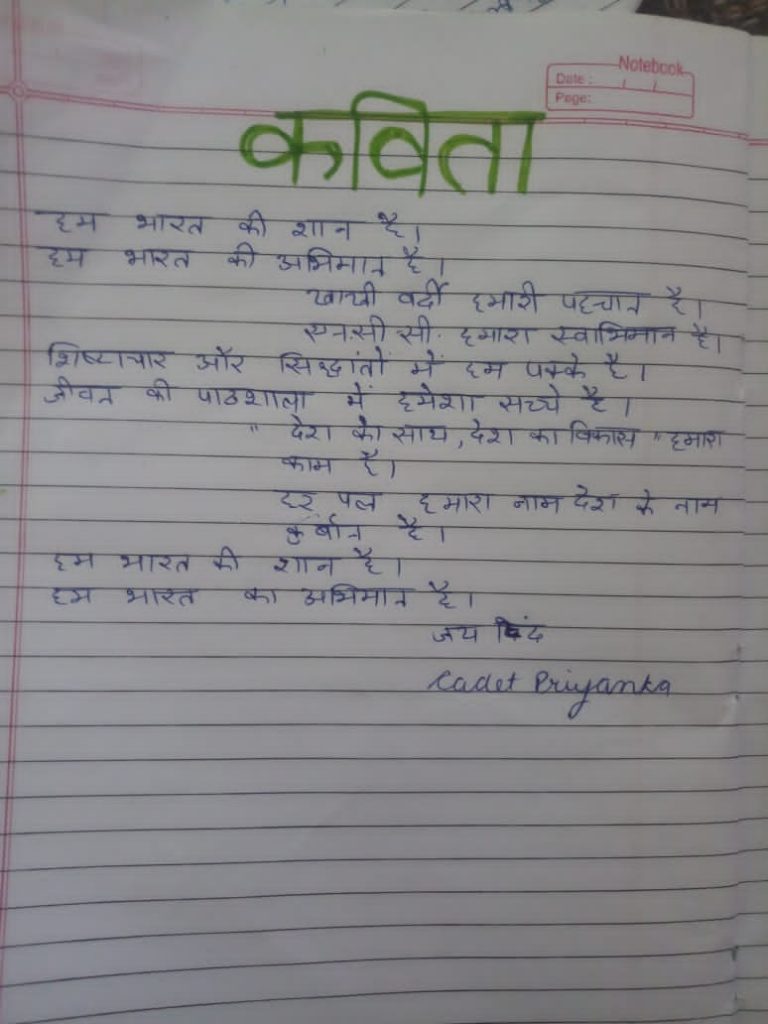 Notebook
Date : / /
Page:
कविता
हम भारत की शान है।
हम भारत की अभिमान है।
खाखी वर्दी हमारी पहचान है।
एनसी सी. हमारा स्वाभिमान है।
शिष्टाचार और सिद्धांतों में हम पक्के है।
जीवन की पाठशाला में हमेशा सच्चे है।
" देश के साथ, देश का विकास " हमारा
काम है।
हर पल हमारा नाम देश के नाम
कुर्बान है।
हम भारत की शान है।
हम भारत का अभिमान है।
जय हिंद
Cadet Priyanka